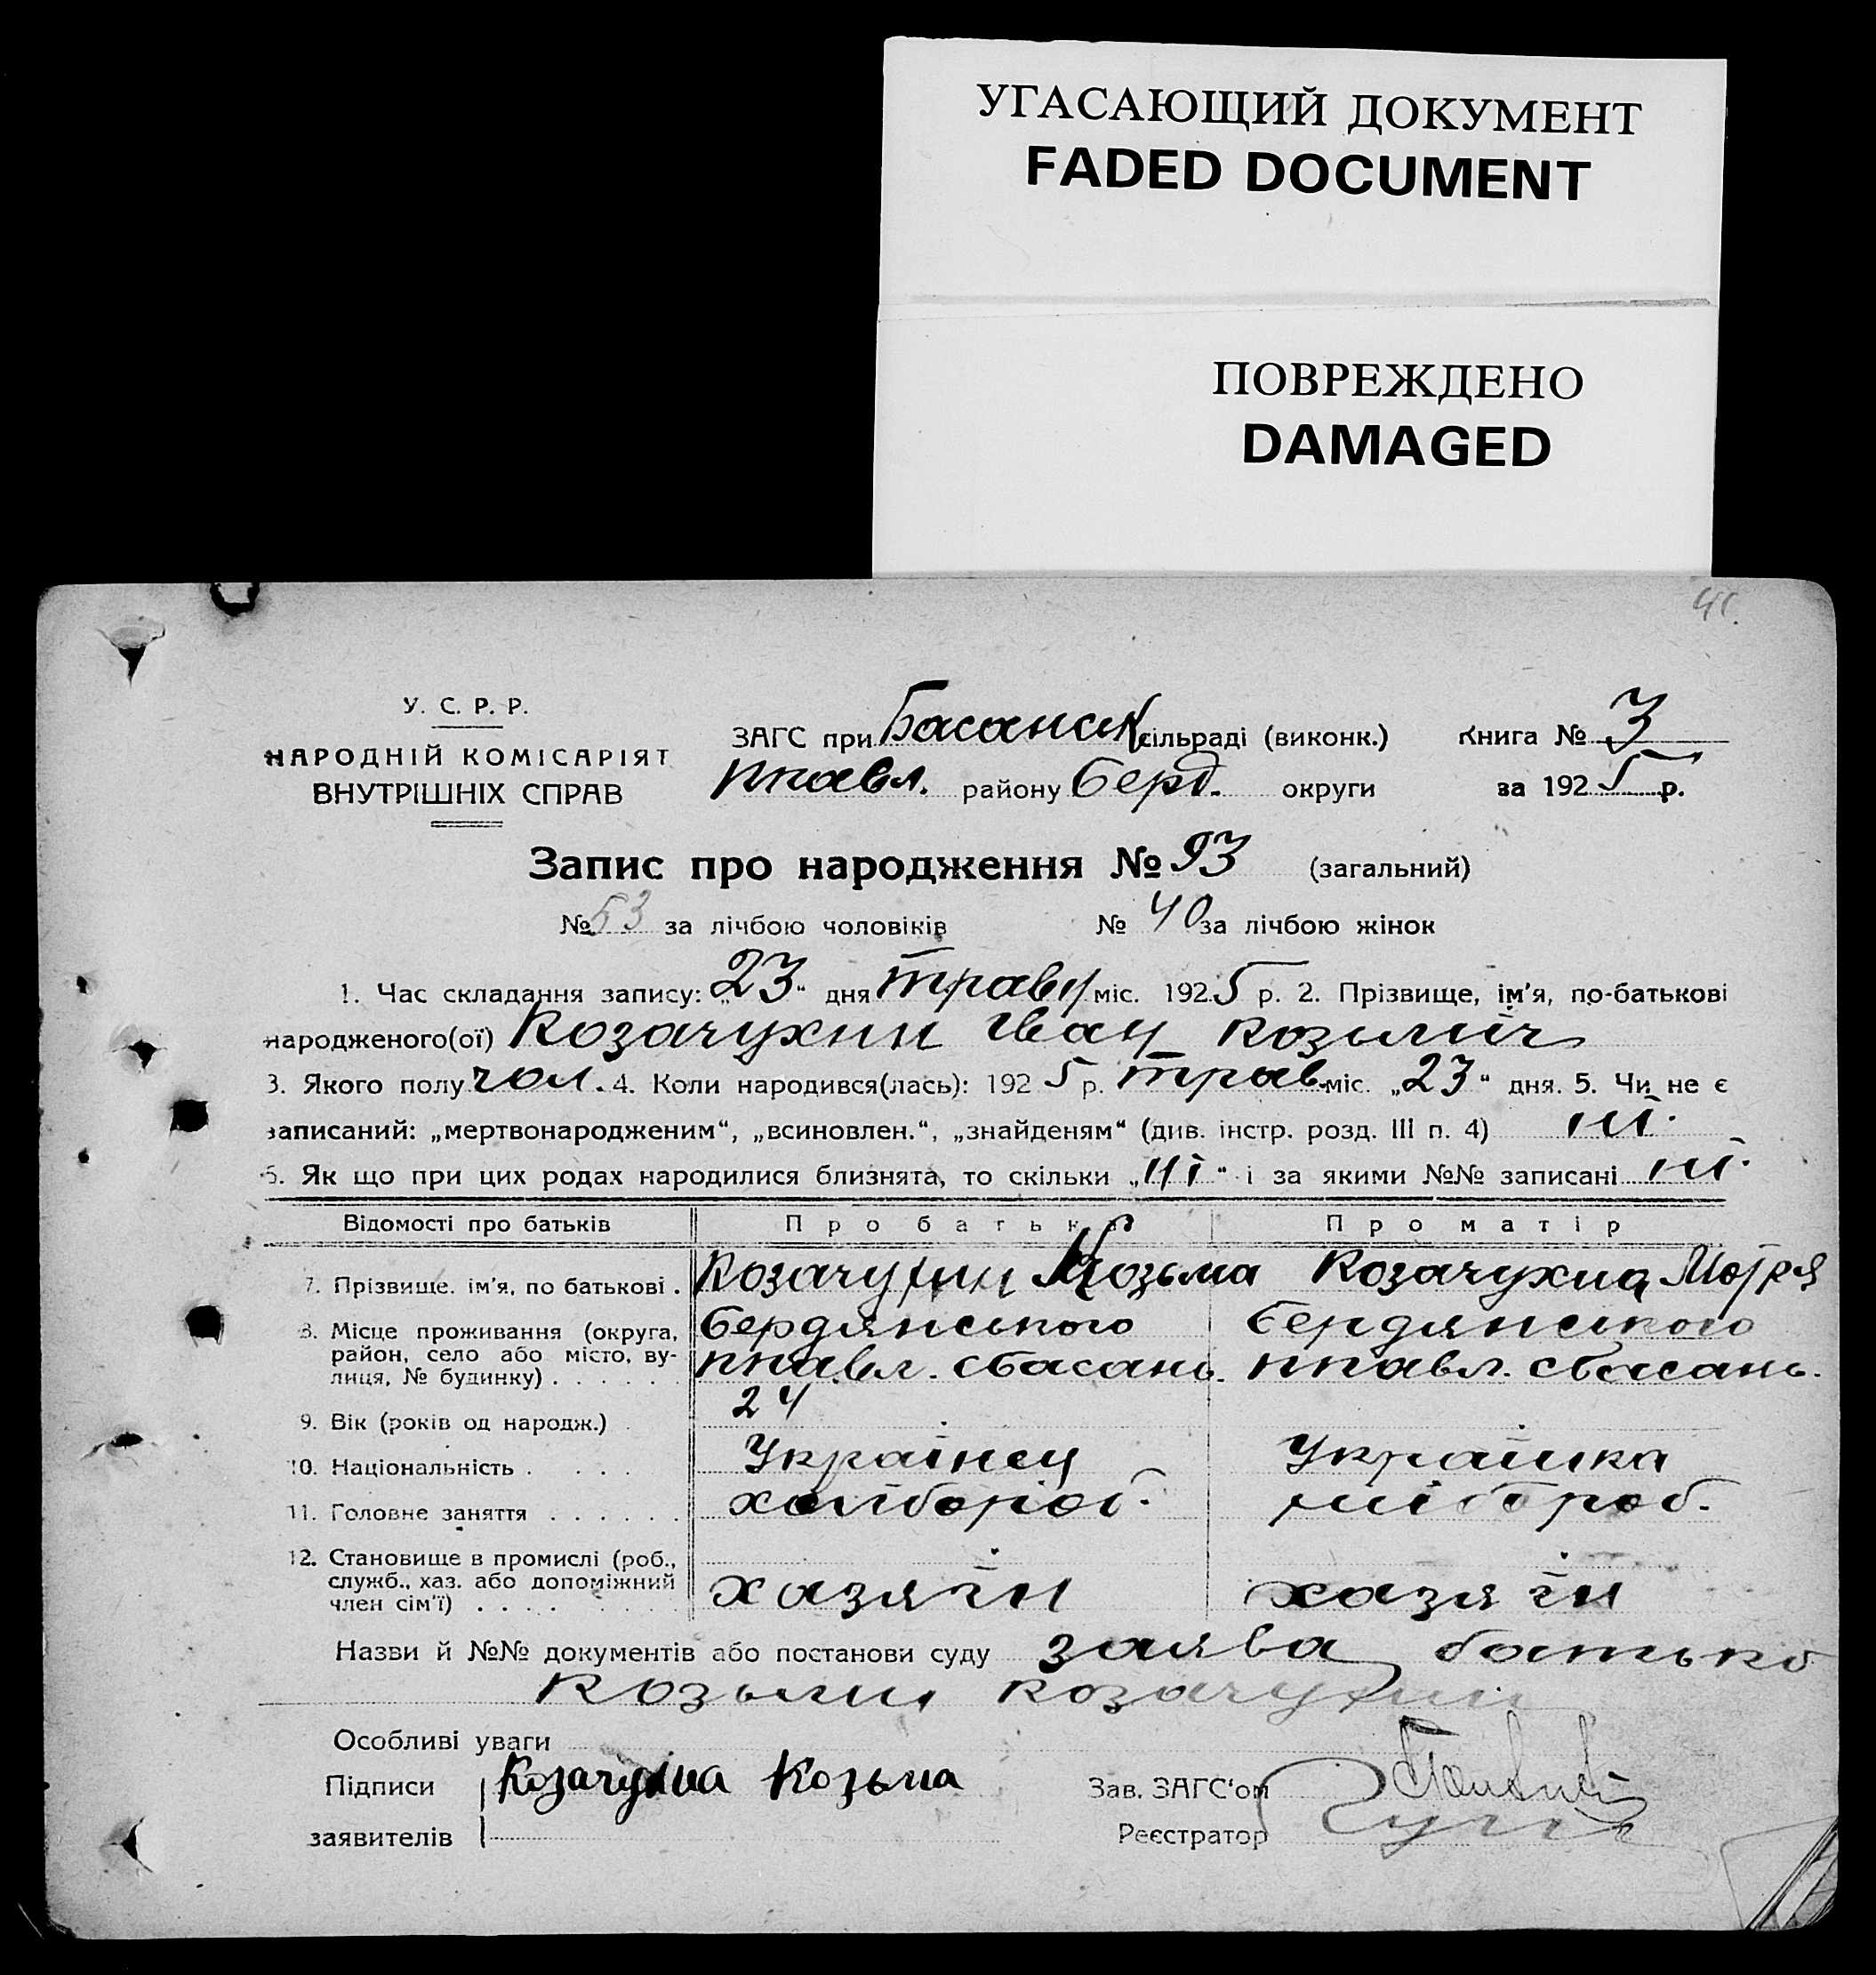 УГАСАЮЩИЙ ДОКУМЕНТ
FADED DOCUMENT
ПОВРЕЖДЕНО
DAMAGED
У. С. Р. Р.
НАРОДНІЙ КОМІСАРІЯТ
ВНУТРІШНІХ СПРАВ
ЗАГС при Басанськ сільраді (виконк.) Книга № 3
ппавл. району Берд. округи за 1925 р.
Запис про народження № 93 (загальний)
№ 53 за лічбою чоловіків № 40 за лічбою жінок
1. Час складання запису: „23“ дня травн міс. 1925 р. 2. Прізвище, ім'я, по-батькові
народженого(ої) Козачухин Іван Козьмич
3. Якого полу чол. 4. Коли народився(лась): 1925 р. трав. міс. „23“ дня. 5. Чи не є
записаний: „мертвонародженим“, „всиновлен.“, „знайденям“ (див. інстр. розд. III п. 4) ні.
6. Як що при цих родах народилися близнята, то скільки „ні“ і за якими №№ записані ні.
Відомості про батьків Про батька Про матір
7. Прізвище. ім'я, по батькові . Козачухин Козьма Козачухина Мотря
8. Місце проживання (округа, Бердянського Бердянського
район, село або місто, ву- ппавл. с басань. ппавл. с басань.
лиця, № будинку) . . . . . .
9. Вік (років од народж.) 24
10. Національність . . . . Українец Українка
11. Головне заняття . . . . . . хлібороб.
12. Становище в промислі (роб.,
служб., хаз. або допоміжний хазяїн хазяїн
член сім'ї) . . . .
Назви й №№ документів або постанови суду заява батько
Козьми Козачухин
Особливі уваги
Підписи Козачухина Козьма Зав. ЗАГС'ом
заявителів Реєстратор